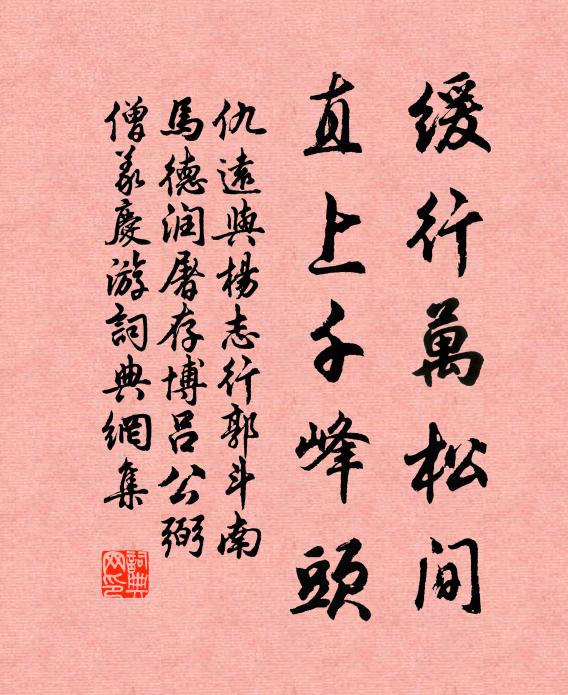 緩行萬松间
直上千峰頭
仇遠與楊志行郭斗南
馬德润屠存博吕公弼
僧義慶游詞典網集
詞典网印